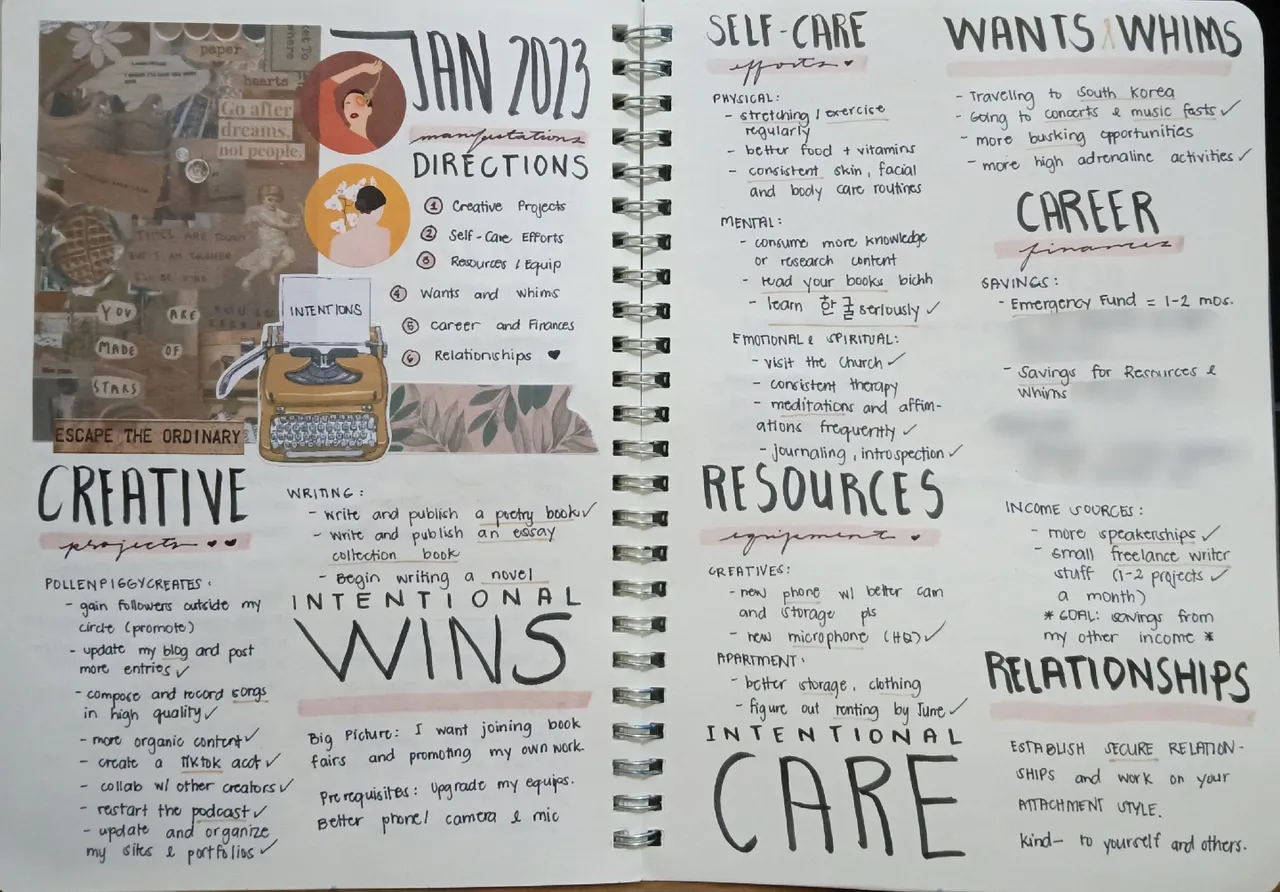 paper
hearts
Go after
dreams.
not people.
TIMES ARE TOUGH
BUT I AM TOUGHER
YOU ARE
MADE OF
STARS
ESCAPE THE ORDINARY
INTENTIONS
JAN 2023
manifestations
DIRECTIONS
1 Creative Projects
2 Self-Care Efforts
3 Resources / Equip
4 Wants and Whims
5 Career and Finances
6 Relationships ♥
CREATIVE
projects ♥♥
POLLENPIGGYCREATES:
- gain followers outside my
circle (promote)
- update my blog and post
more entries ✓
- compose and record songs
in high quality ✓
- more organic content ✓
- create a TikTok acct ✓
- collab w/ other creators ✓
- restart the podcast ✓
- update and organize
my sites & portfolios ✓
WRITING:
- write and publish a poetry book ✓
- write and publish an essay
collection book
- Begin writing a novel
INTENTIONAL
WINS
Big Picture: I want joining book
fairs and promoting my own work.
Prerequisites: Upgrade my equips.
Better phone / camera & mic
SELF-CARE
efforts ♥
PHYSICAL:
- stretching / exercise
regularly
- better food + vitamins
- consistent skin, facial
and body care routines
MENTAL:
- consume more knowledge
or research content
- read your books bichh
- learn 한글 seriously ✓
EMOTIONAL & SPIRITUAL:
- visit the Church ✓
- consistent therapy
- meditations and affirm-
ations frequently ✓
- journaling, introspection ✓
RESOURCES
equipment ♥
CREATIVES:
- new phone w/ better cam
and storage pls
- new microphone (HQ) ✓
APARTMENT:
- better storage, clothing
- figure out renting by June ✓
INTENTIONAL
CARE
WANTS & WHIMS
- Traveling to South Korea
- Going to concerts & music fests ✓
- more busking opportunities
- more high adrenaline activities ✓
CAREER
finances
SAVINGS:
- Emergency Fund = 1-2 mos.
- Savings for Resources &
Whims
INCOME SOURCES:
- more speakerships ✓
- small freelance writer
stuff (1-2 projects ✓
a month)
* GOAL: savings from
my other income *
RELATIONSHIPS
ESTABLISH SECURE RELATION-
SHIPS and work on your
ATTACHMENT STYLE.
Kind— to yourself and others.